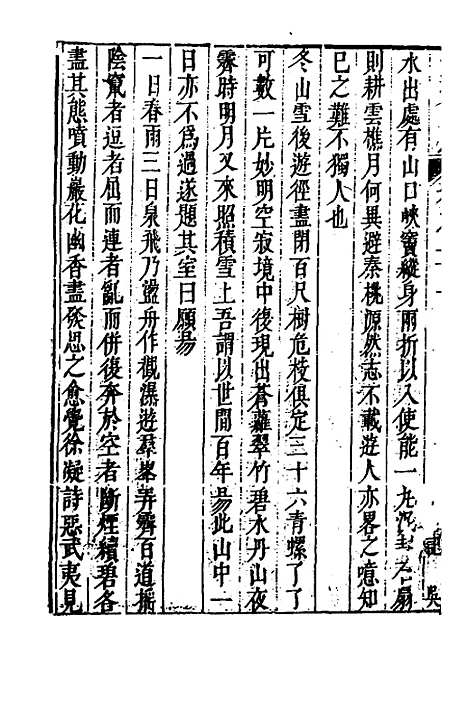 水出處有山口峽竇縱身兩折以入使能一丸泥封之扃
則耕雲樵月何異避秦桃源然志不載遊人亦畧之噫知
已之難不獨人也
冬山雪後遊徑盡閉百尺樹危枝俱定三十六青螺了了
可數一片妙明空寂境中後現出蒼蘿翠竹碧水丹山夜
霽時明月又來照積雪上吾謂以世間百年昜此山中一
日亦不為過遂題其室曰願昜
一日春雨三日泉飛乃盪舟作觀瀑遊羣峯弄霽百道搖
陰竄者逗者屈而連者亂而併復奔於空者斷煙續碧各
盡其態噴動巖花幽香盡發思之愈覺徐凝詩惡武夷見